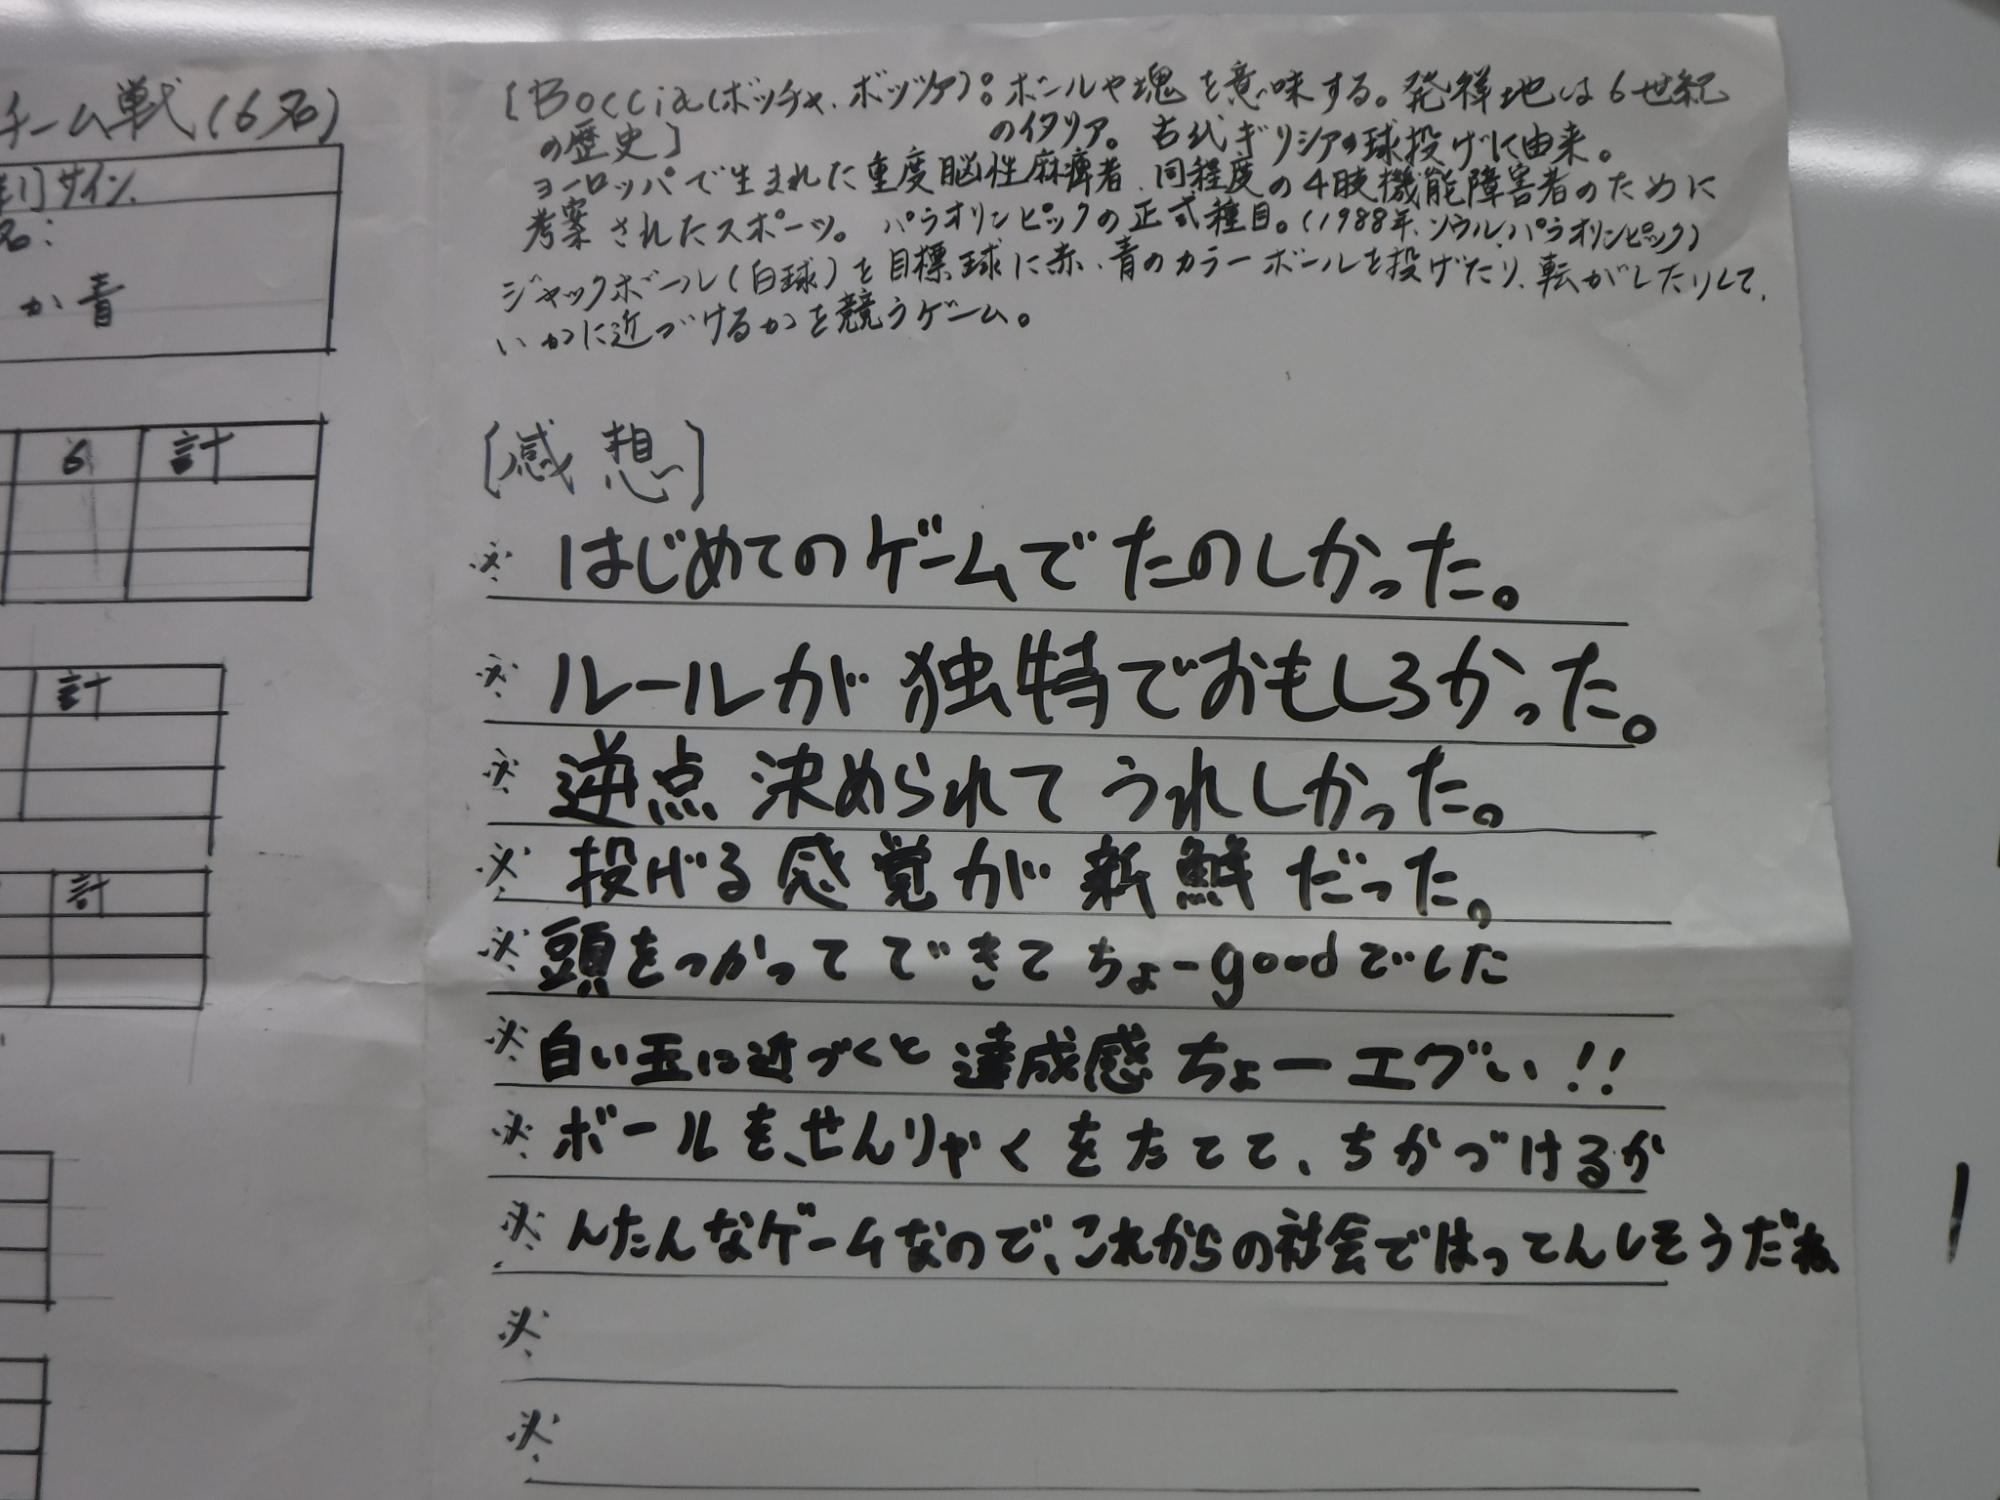 チーム戦(6名)
サイン
名:
か青
6 計
計
計
[Boccia(ボッチャ、ボッツァ):ボールや塊を意味する。発祥地は6世紀
の歴史]
のイタリア。古代ギリシアの球投げに由来。
ヨーロッパで生まれた重度脳性麻痺者、同程度の4肢機能障害者のために
考案されたスポーツ。パラオリンピックの正式種目。(1988年、ソウルパラオリンピック)
ジャックボール(白球)を目標球に赤、青のカラーボールを投げたり、転がしたりして、
いかに近づけるかを競うゲーム。
[感想]
※ はじめてのゲームでたのしかった。
※ ルールが独特でおもしろかった。
※ 逆点決められてうれしかった。
※ 投げる感覚が新鮮だった。
※ 頭をつかってできてちょーgoodでした
※ 白い玉に近づくと達成感ちょーエグい!!
※ ボールを、せんりゃくをたてて、ちかづけるか
※ んたんなゲームなので、これからの社会ではってんしそうだね
※
※